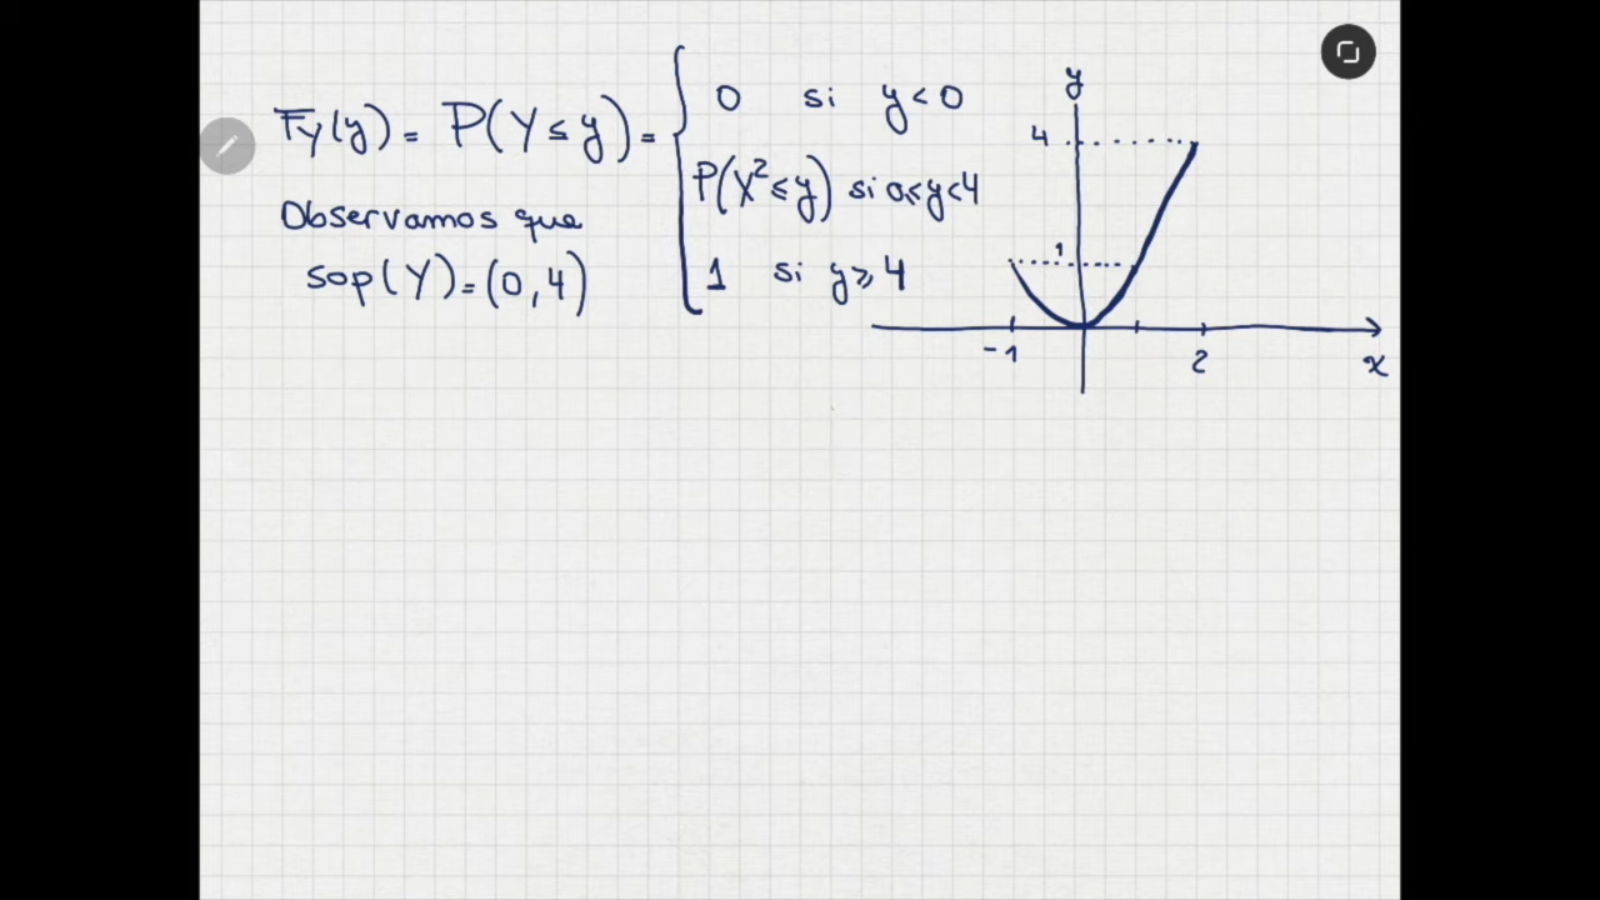 F_Y(y) = P(Y ≤ y) = { 0 si y < 0
P(X² ≤ y) si 0 ≤ y < 4
1 si y ≥ 4
Observamos que
sop(Y) = (0, 4)
y
4
1
-1
2
x